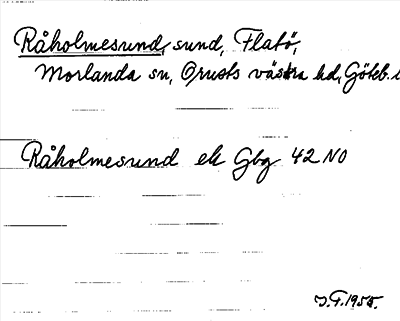 Råholmesund, sund, Flatö,
Morlanda sn, Orusts västra hd, Göteb.
Råholmesund ek Gbg 42 NO
J.F. 1955.